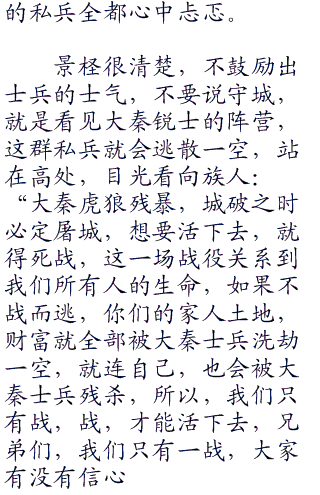 的私兵全都心中忐忑。
景柽很清楚，不鼓励出
士兵的士气，不要说守城，
就是看见大秦锐士的阵营，
这群私兵就会逃散一空，站
在高处，目光看向族人：
“大秦虎狼残暴，城破之时
必定屠城，想要活下去，就
得死战，这一场战役关系到
我们所有人的生命，如果不
战而逃，你们的家人土地，
财富就全部被大秦士兵洗劫
一空，就连自己，也会被大
秦士兵残杀，所以，我们只
有战，战，才能活下去，兄
弟们，我们只有一战，大家
有没有信心